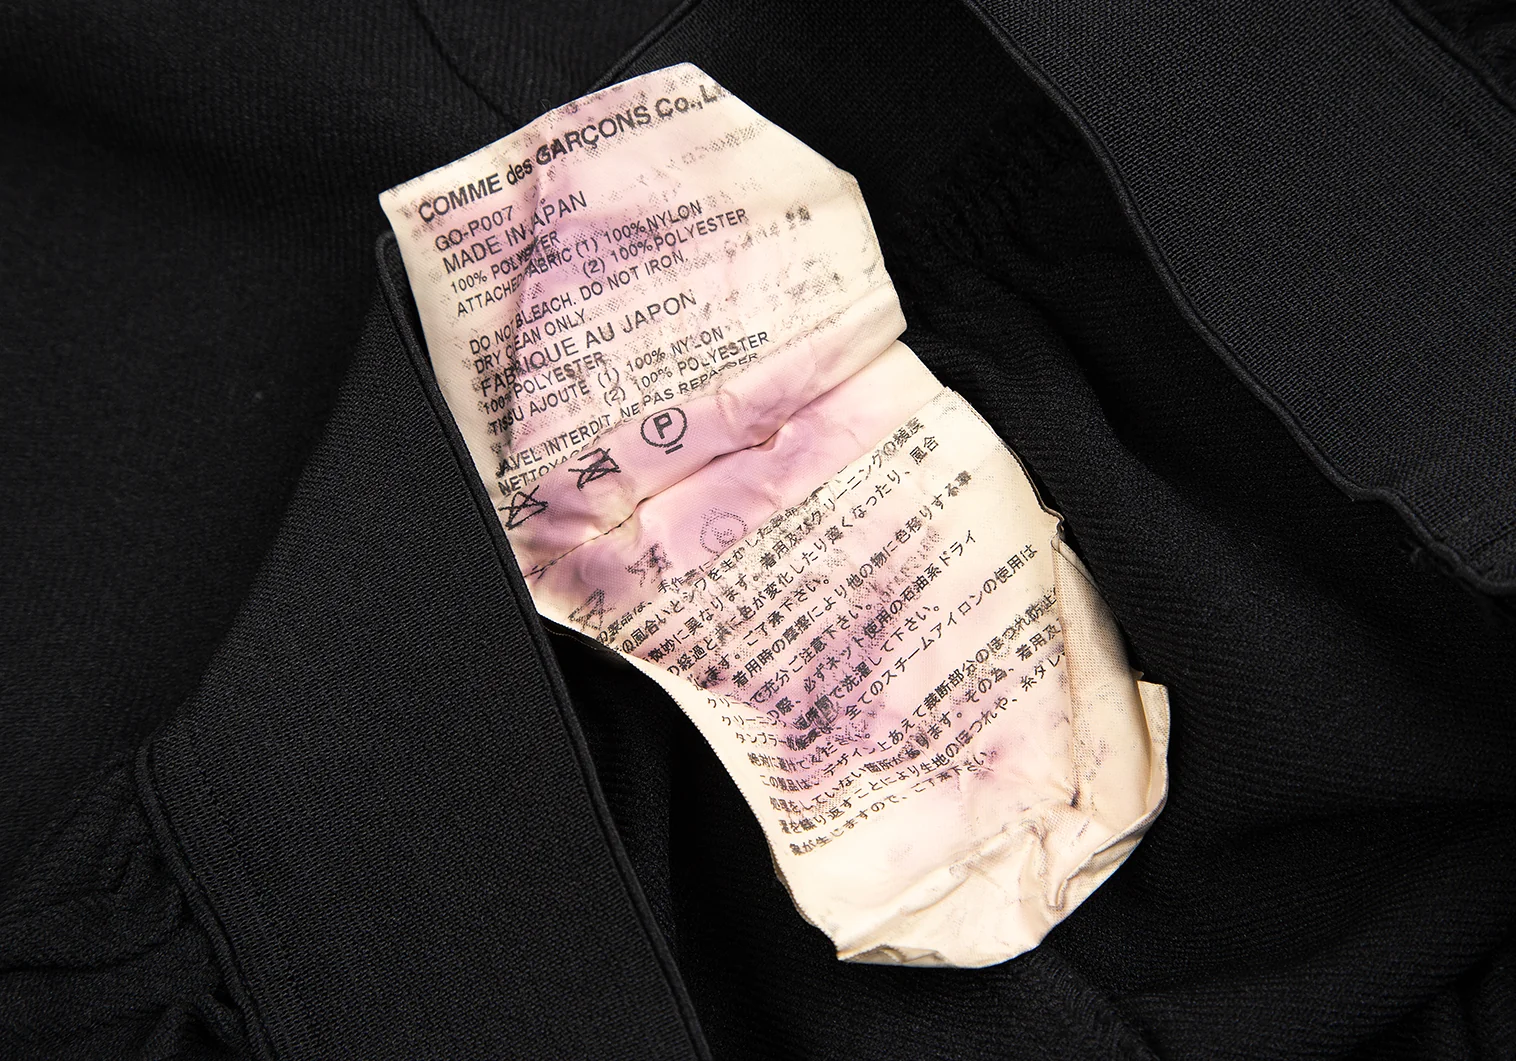 COMME des GARÇONS Co.,L
GO-P007
MADE IN JAPAN
100% POLYESTER
ATTACHED FABRIC (1) 100% NYLON
(2) 100% POLYESTER
DO NOT BLEACH. DO NOT IRON.
DRY CLEAN ONLY.
FABRIQUE AU JAPON
100% POLYESTER
TISSU AJOUTE (1) 100% NYLON
(2) 100% POLYESTER
JAVEL INTERDIT. NE PAS REPASSER
NETTOYAGE
P
シワを生かした
風合いと
微妙に異なります。着用及びクリーニングの頻度
の経過と共に色が変化したり薄くなったり、風合
す。ご了承下さい。
着用時の摩擦により他の物に色移りする事
で充分ご注意下さい。
の際、必ずネット使用の石油系ドライ
クリーニング 短時間で洗濯して下さい。
タンブラー 全てのスチームアイロンの使用は
絶対に避けて下さい。
この製品は、デザイン上あえて裁断部分のほつれ防止
処理をしていない箇所があります。その為、着用及
を繰り返すことにより生地のほつれや、糸ダレ
が生じますので、ご了承下さい。